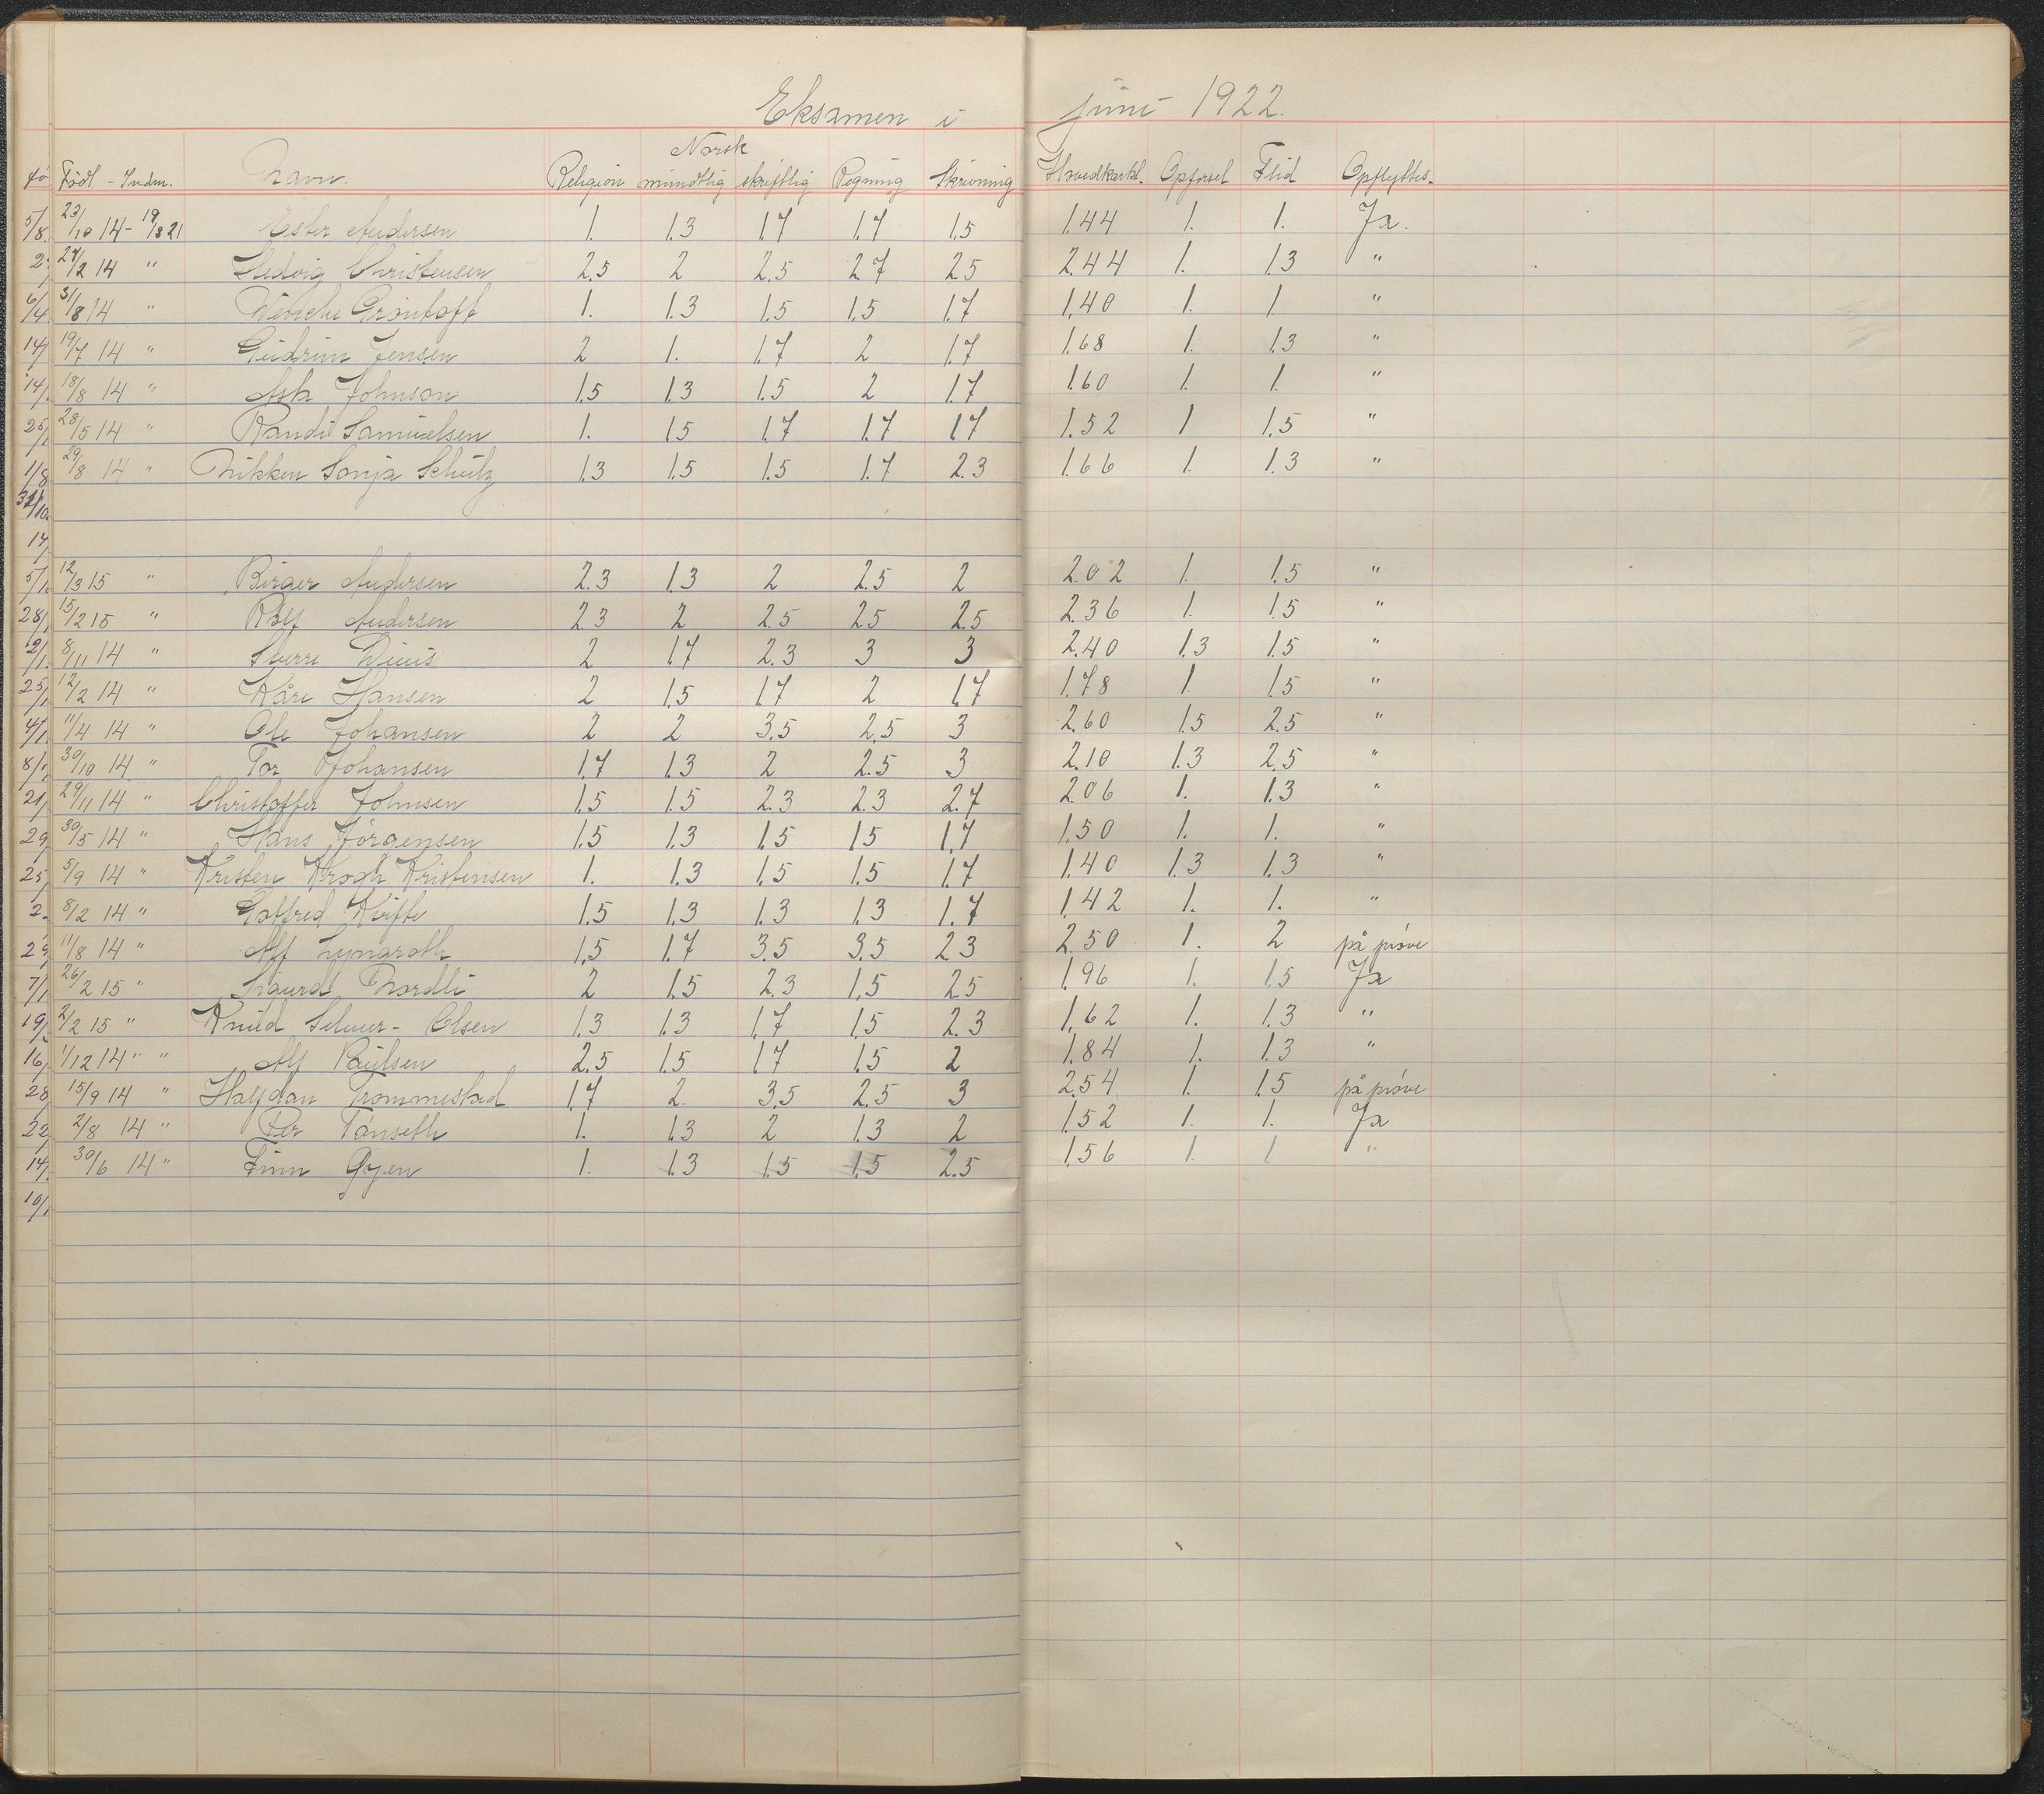 Eksamen i juni 1922.
Norsk
Født - Indm. Navn. Religion mundtlig skriftlig Regning Skrivning Hovedkarkt. Opførsel Flid Opflyttes.
23/10 14 - 19/8 21 Ester Andersen 1. 1.3 1.7 1.7 1.5 1.44 1. 1. Ja.
27/2 14 " Hedvig Christensen 2.5 2 2.5 2.7 2.5 2.44 1. 1.3 "
31/8 14 " Wenche Grøntoft 1. 1.3 1.5 1.5 1.7 1.40 1. 1 "
19/7 14 " Gudrun Jensen 2 1. 1.7 2 1.7 1.68 1. 1.3 "
18/8 14 " Johnson 1.5 1.3 1.5 2 1.7 1.60 1. 1. "
28/5 14 " Randi Samuelsen 1. 1.5 1.7 1.7 1.7 1.52 1 1.5 "
29/8 14 " Nikken Sonja Schultz 1.3 1.5 1.5 1.7 2.3 1.66 1. 1.3 "
12/3 15 " Birger Andersen 2.3 1.3 2 2.5 2 2.02 1. 1.5 "
15/2 15 " Rolf Andersen 2.3 2 2.5 2.5 2.5 2.36 1. 1.5 "
8/11 14 " Sverre 2 1.7 2.3 3 3 2.40 1.3 1.5 "
12/2 14 " Kåre Hansen 2 1.5 1.7 2 1.7 1.78 1. 1.5 "
11/4 14 " Ole Johansen 2 2 3.5 2.5 3 2.60 1.5 2.5 "
30/10 14 " Tor Johansen 1.7 1.3 2 2.5 3 2.10 1.3 2.5 "
29/11 14 " Christoffer Johnsen 1.5 1.5 2.3 2.3 2.7 2.06 1. 1.3 "
30/5 14 " Hans Jörgensen 1.5 1.3 1.5 1.5 1.7 1.50 1. 1. "
5/9 14 " Kristen Krogh Kristensen 1. 1.3 1.5 1.5 1.7 1.40 1.3 1.3 "
8/2 14 " Gotfred Kvifte 1.5 1.3 1.3 1.3 1.7 1.42 1. 1. "
11/8 14 " Alf Lyngroth 1.5 1.7 3.5 3.5 2.3 2.50 1. 2 på prøve
26/2 15 " Sigurd Nordli 2 1.5 2.3 1.5 2.5 1.96 1. 1.5 Ja
2/2 15 " Knud Selmer - Olsen 1.3 1.3 1.7 1.5 2.3 1.62 1. 1.3 "
1/12 14 " " Alf Paulsen 2.5 1.5 1.7 1.5 2 1.84 1. 1.3 "
15/9 14 " Halfdan Trommestad 1.7 2. 3.5 2.5 3 2.54 1. 1.5 på prøve
2/8 14 " Per Tånseth 1. 1.3 2 1.3 2 1.52 1. 1. Ja
30/6 14 " Finn Øyen 1. 1.3 1.5 1.5 2.5 1.56 1. 1. "